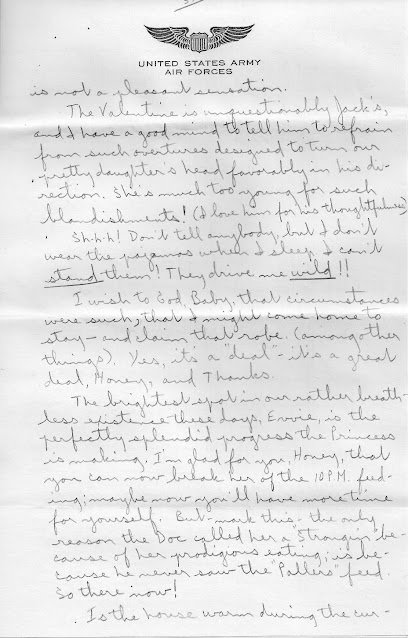 UNITED STATES ARMY
AIR FORCES
is not a pleasant sensation.
The Valentine is unquestionably Jack's,
and I have a good mind to tell him to refrain
from such overtures designed to turn our
pretty daughter's head favorably in his di-
rection. She's much too young for such
blandishments! (I love him for his thoughtfulness)
Sh-h-h! Don't tell anybody, but I don't
wear the pajamas when I sleep. I can't
stand them! They drive me wild!!
I wish to God, Baby, that circumstances
were such, that I might come home to
stay - and claim that robe. (among other
things). Yes, it's a "deal" - it's a great
deal, Honey, and Thanks.
The brightest spot in our rather breath-
less existence these days, Ervie, is the
perfectly splendid progress the Princess
is making. I'm glad for you, Honey, that
you can now break her of the 10 P.M. feed-
ing; maybe now you'll have more time
for yourself. But - mark this - the only
reason the Doc called her a be-
cause of her prodigious eating, is be-
cause he never saw the "Pallers" feed.
So there now!
Is the house warm during the cur-